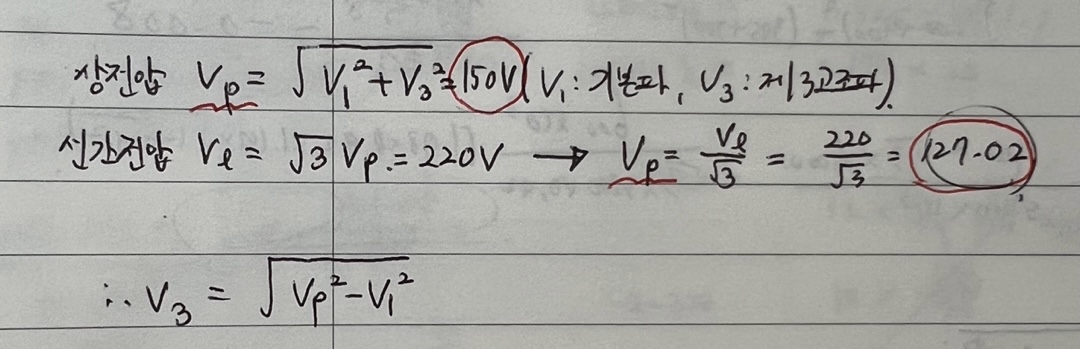 상전압 Vp = √(V₁² + V₃²) = 150V (V₁ : 기본파, V₃ : 제3고조파).
선간전압 Vℓ = √3 Vp = 220V → Vp = Vℓ/√3 = 220/√3 = 127.02
∴ V₃ = √(Vp² - V₁²)